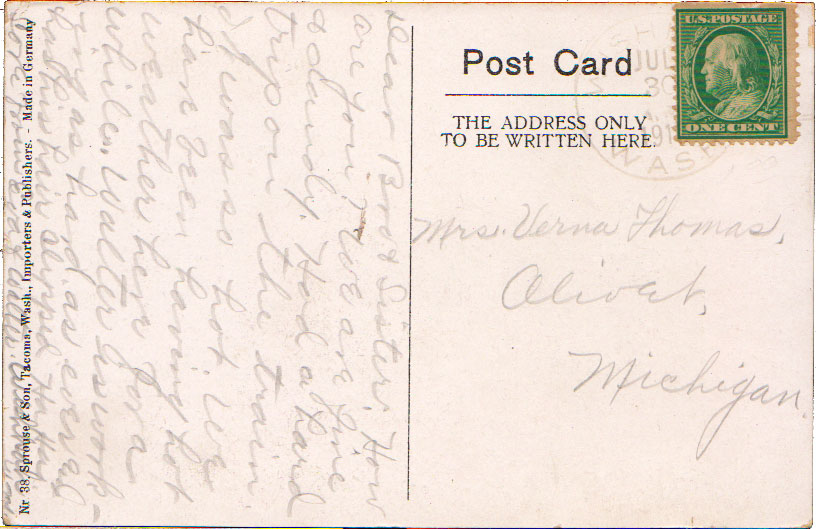 Post Card
THE ADDRESS ONLY
TO BE WRITTEN HERE.
U.S. POSTAGE
ONE CENT
JUL
30
WASH
Mrs. Verna Thomas,
Olivet,
Michigan.
Dear Bro & Sister: How
are you? We are fine
& dandy. Had a hard
trip on the train
it was so hot. We
have been having hot
weather here for a
while. Walter is work-
ing as hard as ever
has his hair clipped
Nr 38, Sprouse & Son, Tacoma, Wash., Importers & Publishers. - Made in Germany